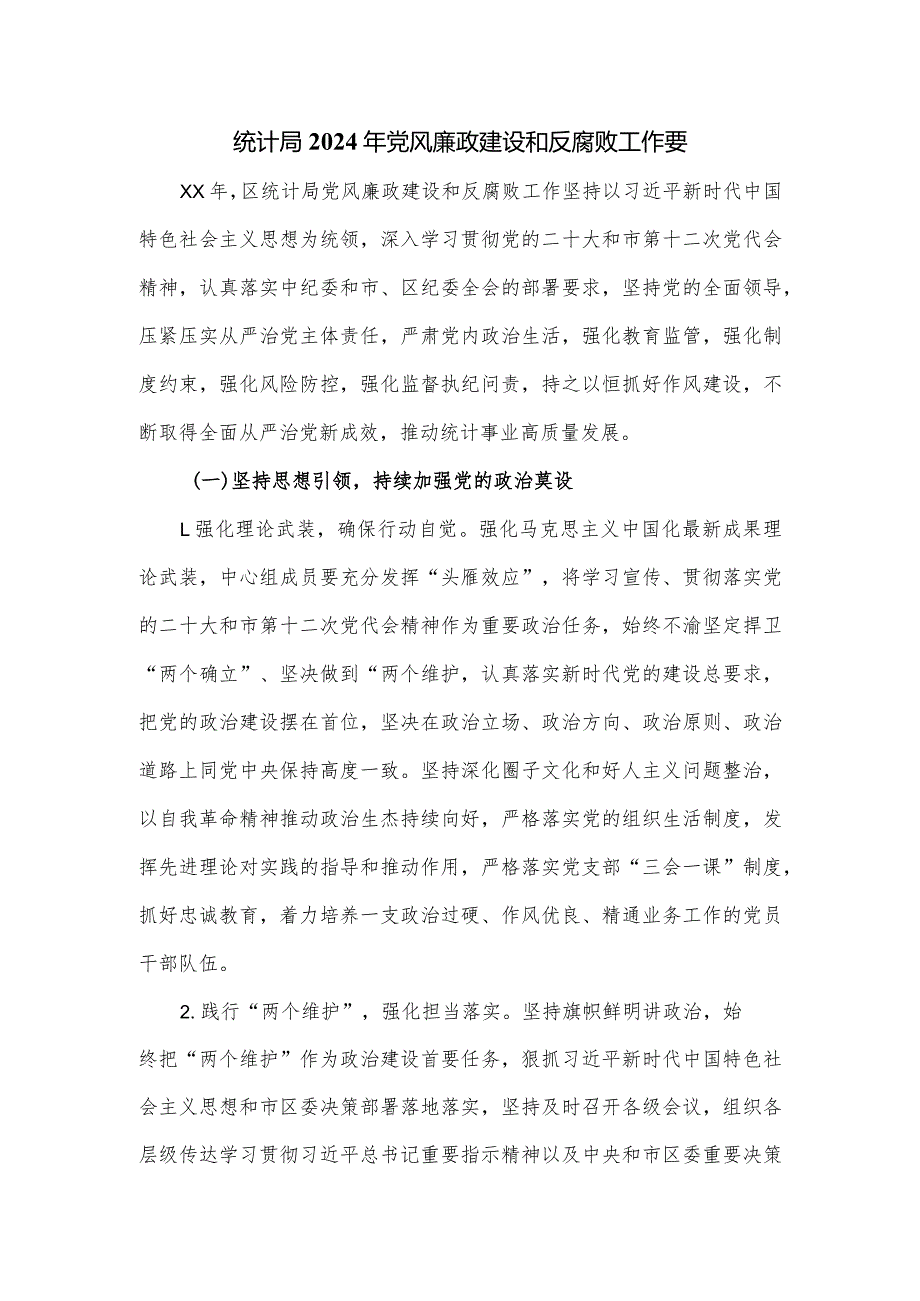 统计局 2024 年党风廉政建设和反腐败工作要
XX 年，区统计局党风廉政建设和反腐败工作坚持以习近平新时代中国
特色社会主义思想为统领，深入学习贯彻党的二十大和市第十二次党代会
精神，认真落实中纪委和市、区纪委全会的部署要求，坚持党的全面领导，
压紧压实从严治党主体责任，严肃党内政治生活，强化教育监管，强化制
度约束，强化风险防控，强化监督执纪问责，持之以恒抓好作风建设，不
断取得全面从严治党新成效，推动统计事业高质量发展。
(一)坚持思想引领，持续加强党的政治莫设
L 强化理论武装，确保行动自觉。强化马克思主义中国化最新成果理
论武装，中心组成员要充分发挥“头雁效应”，将学习宣传、贯彻落实党
的二十大和市第十二次党代会精神作为重要政治任务，始终不渝坚定捍卫
“两个确立”、坚决做到“两个维护，认真落实新时代党的建设总要求，
把党的政治建设摆在首位，坚决在政治立场、政治方向、政治原则、政治
道路上同党中央保持高度一致。坚持深化圈子文化和好人主义问题整治，
以自我革命精神推动政治生杰持续向好，严格落实党的组织生活制度，发
挥先进理论对实践的指导和推动作用，严格落实党支部“三会一课”制度，
抓好忠诚教育，着力培养一支政治过硬、作风优良、精通业务工作的党员
干部队伍。
2. 践行“两个维护”，强化担当落实。坚持旗帜鲜明讲政治，始
终把“两个维护”作为政治建设首要任务，狠抓习近平新时代中国特色社
会主义思想和市区委决策部署落地落实，坚持及时召开各级会议，组织各
层级传达学习贯彻习近平总书记重要指示精神以及中央和市区委重要决策